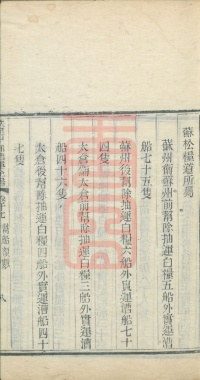 蘇松糧道所屬
蘇州衞蘇州前幫除抽運白糧五船外實運漕
船七十五隻
蘇州後幫除抽運白糧六船外實運漕船七十
四隻
太倉衞太倉前幫除抽運白糧三船外實運漕
船四十六隻
太倉後幫除抽運白糧四船外實運漕船四十
七隻